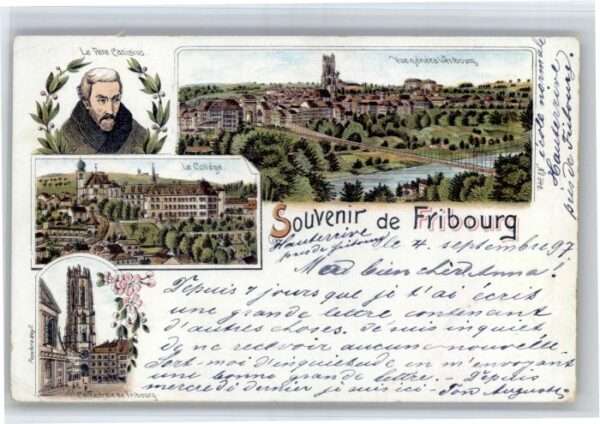 Le Père Canisius
Vue générale Fribourg
Le Collège
Souvenir de Fribourg
Hauterive
près de fribourg
le 4. septembre 97.
Mad bien chère Anna!
Depuis 7 jours que je t'ai écris
une grande lettre contenant
d'autres choses. Je suis inquiet
de ne recevoir aucune nouvelle.
Sort-moi d'inquietude en m'envoyant
une bonne grande lettre. - Depuis
mercredi dernier je suis ici - Ton Auguste.
Cathédrale de Fribourg
école normale
Hauterive
près de Fribourg.